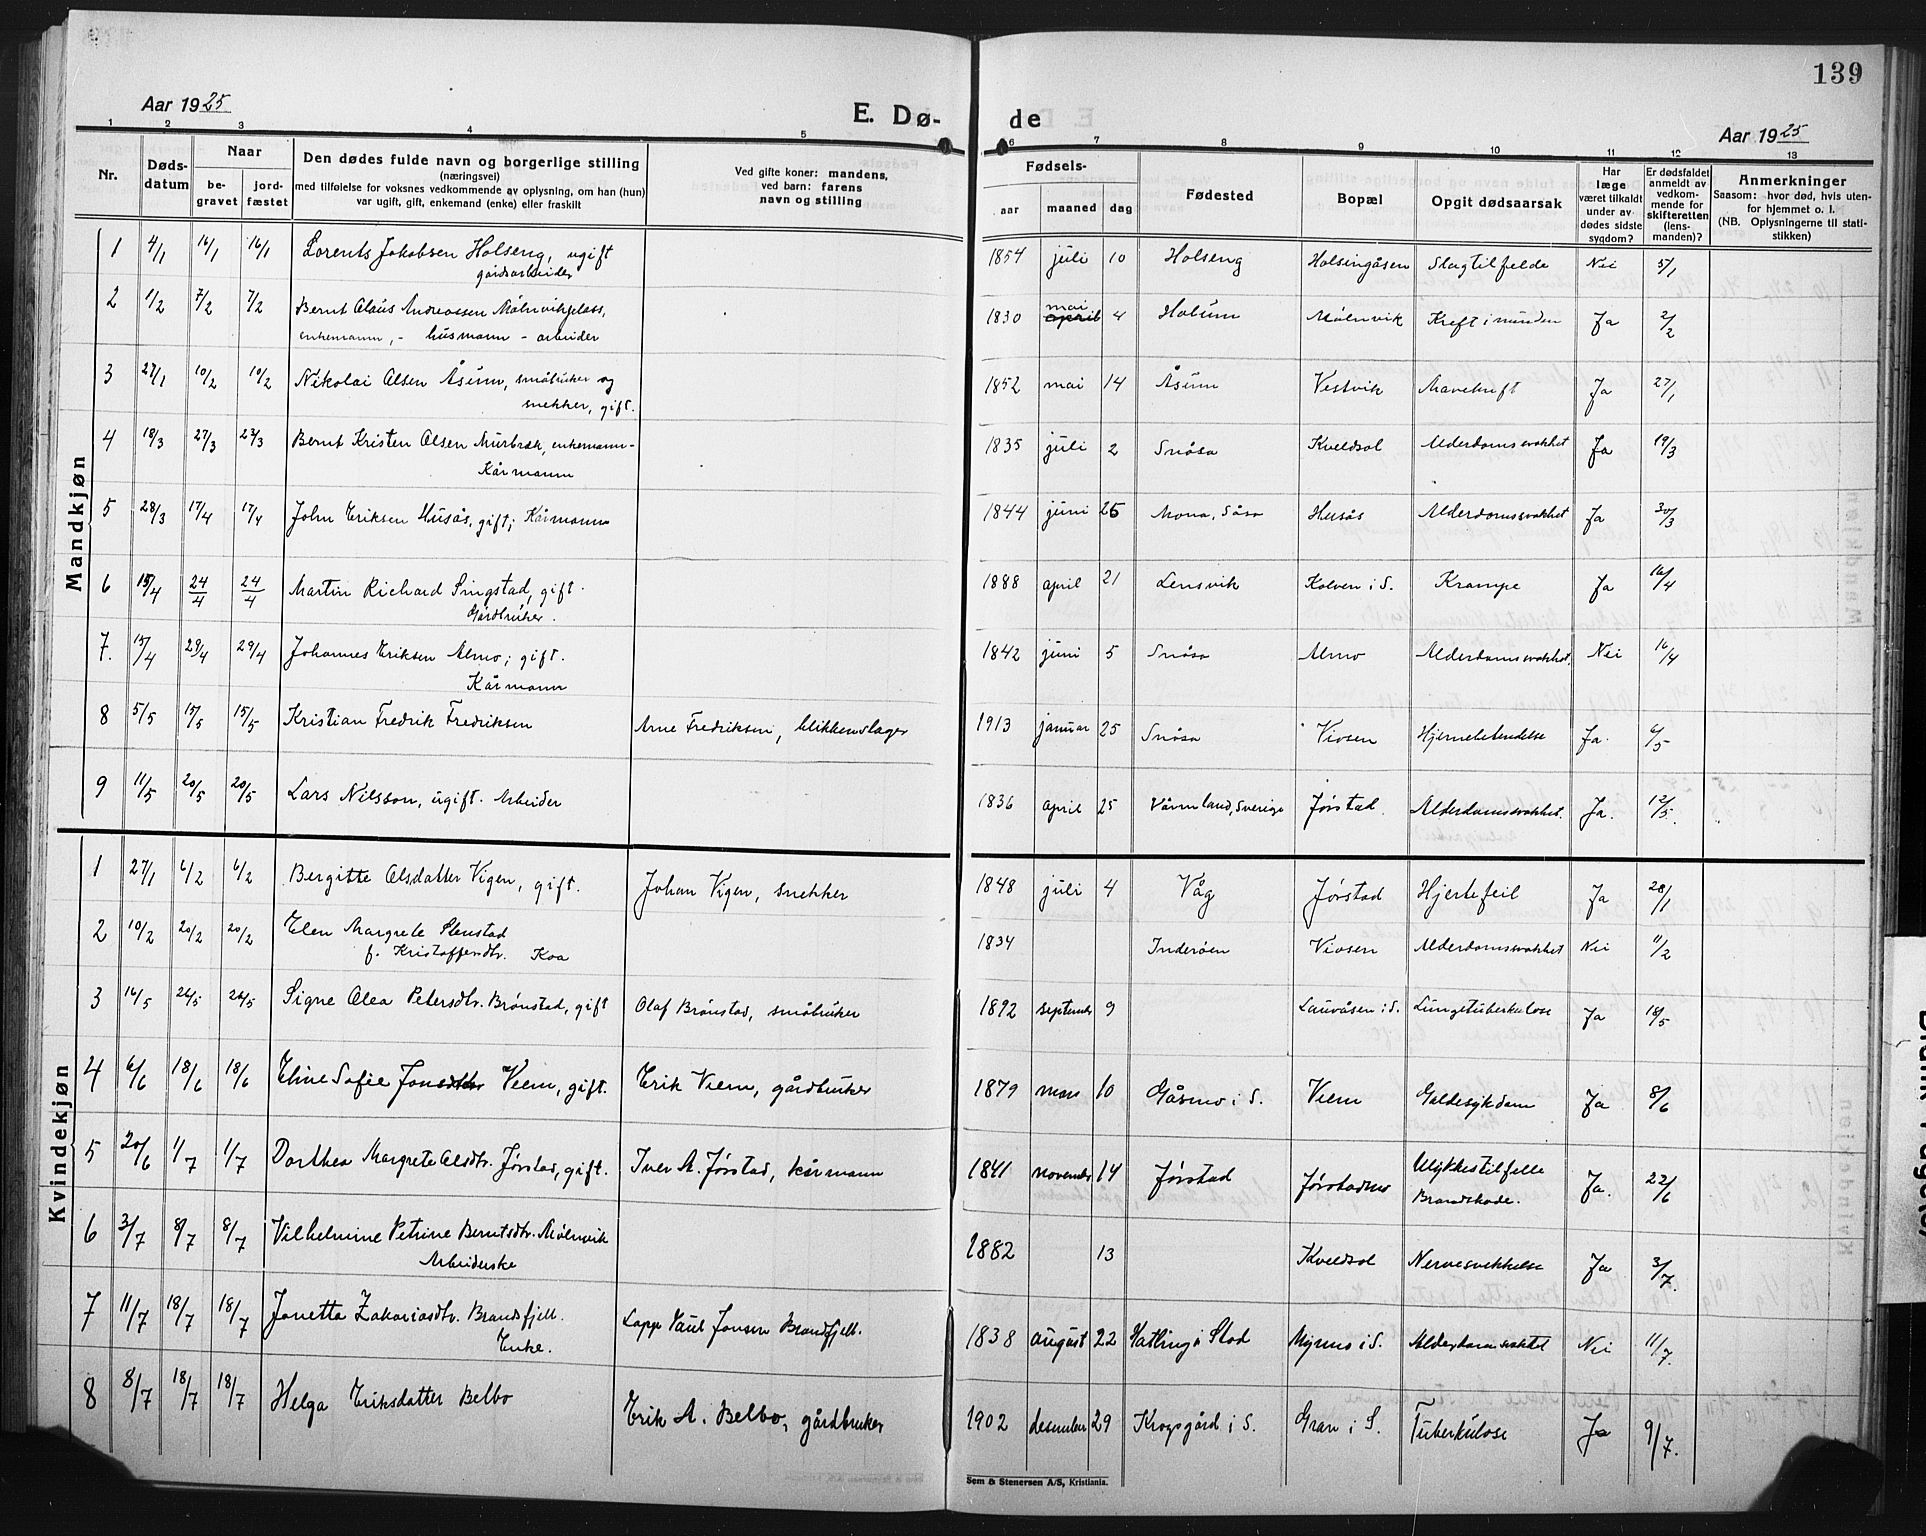 139
Aar 1925
E. Dø-
de
Aar 1925
1 2 3 4 5 6 7 8 9 10 11 12 13
Nr.
Døds-
datum
Naar
be-
gravet
jord-
fæstet
Den dødes fulde navn og borgerlige stilling
(næringsvei)
med tilføielse for voksnes vedkommende av oplysning, om han (hun)
var ugift, gift, enkemand (enke) eller fraskilt
Ved gifte koner: mandens,
ved barn: farens
navn og stilling
Fødsels-
aar maaned dag
Fødested
Bopæl
Opgit dødsaarsak
Har
læge
været tilkaldt
under av-
dødes sidste
sygdom?
Er dødsfaldet
anmeldt av
vedkom-
mende for
skifteretten
(lens-
manden)?
Anmerkninger
Saasom: hvor død, hvis uten-
for hjemmet o. l.
(NB. Oplysningerne til stati-
stikken)
Mandkjøn
1 4/1 16/1 16/1 Lorents Jakobsen Holseng, ugift 1854 juli 10 Holseng Holsingåsen Slagtilfelde Nei 5/1
gårdsarbeider
2 1/2 7/2 7/2 Bernt Olaus Andreassen Mølnvikplass, 1830 mai april 4 Holum Mølnvik Kreft i munden Ja 2/2
enkemann, - husmann - arbeider
3 27/1 10/2 10/2 Nikolai Olsen Åsum, småbruker og 1852 mai 14 Åsum Vestvik Mavekreft Ja 27/1
snekker, gift.
4 18/3 27/3 27/3 Bernt Kristen Olsen Murbræk, enkemann- 1835 juli 2 Snåsa Kveldsol Alderdomssvakhet Ja 19/3
Kårmann
5 28/3 17/4 17/4 John Eriksen Husås, gift; Kårmann 1844 juni 26 Mona, Såsa Husås Alderdomssvakhet Ja 30/3
6 15/4 24/4 24/4 Martin Richard Singstad, gift. 1888 april 21 Lensvik Kolven i S. Krampe Ja 16/4
Gårdbruker.
7. 15/4 29/4 29/4 Johannes Eriksen Almo; gift. 1842 juni 5 Snåsa Almo Alderdomssvakhet. Nei 16/4
Kårmann
8 5/5 15/5 15/5 Kristian Fredrik Fredriksen Arne Fredriksen, blikkenslager 1913 januar 25 Snåsa Viosen Hjernebetendelse Ja. 6/5
9 11/5 20/5 20/5 Lars Nilsson, ugift. Arbeider 1836 april 25 Värmland, Sverige Jørstad. Alderdomssvakhet. Ja. 12/5.
Kvindekjøn
1 27/1 6/2 6/2 Bergitte Olsdatter Vigen, gift. Johan Vigen, snekker 1848 juli 4 Våg Jørstad Hjertefeil Ja 28/1
2 10/2 20/2 20/2 Elen Margrete Stenstad 1834 Inderøen Viosen Alderdomssvakhet Nei 11/2
f. Kristoffersdtr. Koa
3 16/5 26/5 26/5 Signe Olea Petersdtr. Brønstad, gift Olaf Brønstad, småbruker 1892 september 9 Lauvåsen i S. Lungetuberkulose Ja 18/5
4 6/6 18/6 18/6 Eline Sofie Jonsdtr Veem, gift. Erik Viem, gårdbruker 1879 mars 10 Gåsmo i S. Viem Galdesykdom Ja 8/6
5 20/6 1/7 1/7 Dorthea Margrete Olsdtr. Jørstad, gift. Iver A. Jørstad, kårmann 1841 november 14 Jørstad Jørstadmo Ulykkestilfelle Ja. 22/6
Brandskade.
6 3/7 8/7 8/7 Vilhelmine Petrine Berntsdtr. Mølnvik 1882 13 Kveldsol Nervesvekkelse Ja 3/7.
Arbeiderske
7 11/7 18/7 18/7 Jonetta Zakariasdtr. Brandsfjell. Lapp Paul Jonsen Brandfjell. 1838 august 22 Hatling i Stod Myrmo i S. Alderdomssvakhet Nei 11/7.
Enke.
8 8/7 18/7 18/7 Helga Eriksdatter Belbo Erik A. Belbo, gårdbruker 1902 desember 29 Krogsgård i S. Gran i S. Tuberkulose Ja 9/7.
Sem & Stenersen A/S, Kristiania.